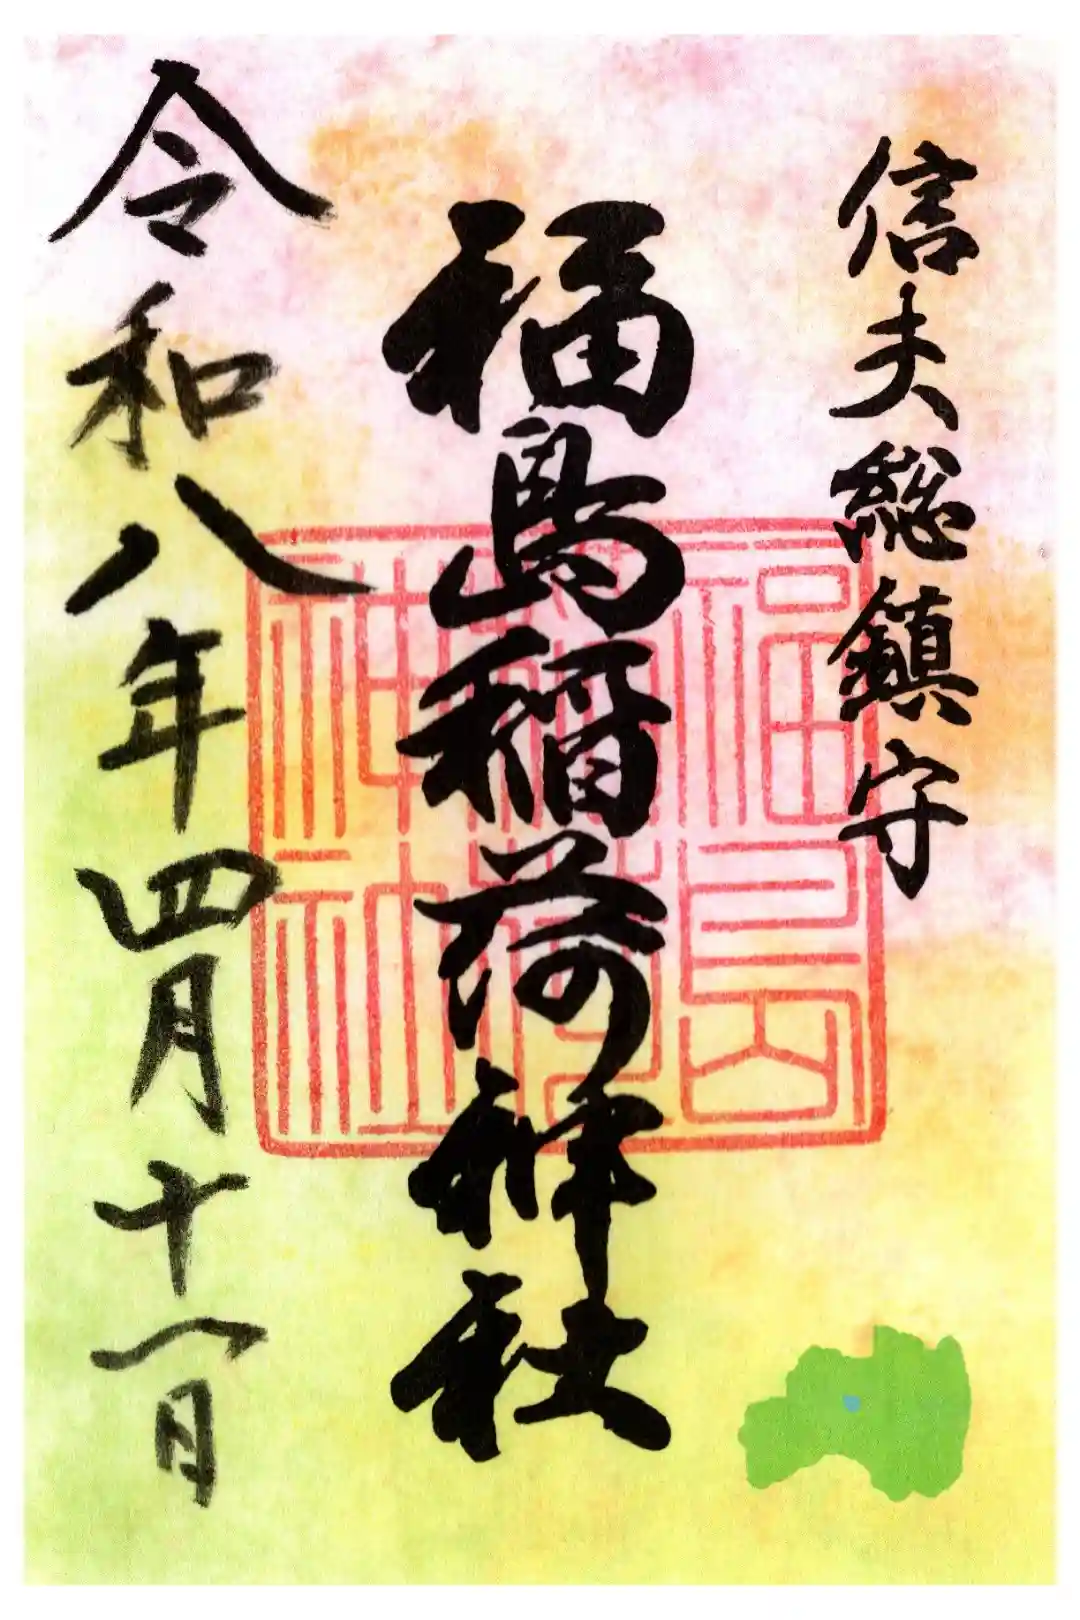 信夫総鎮守
福島稲荷神社
福島稲荷神社
令和八年四月十一日